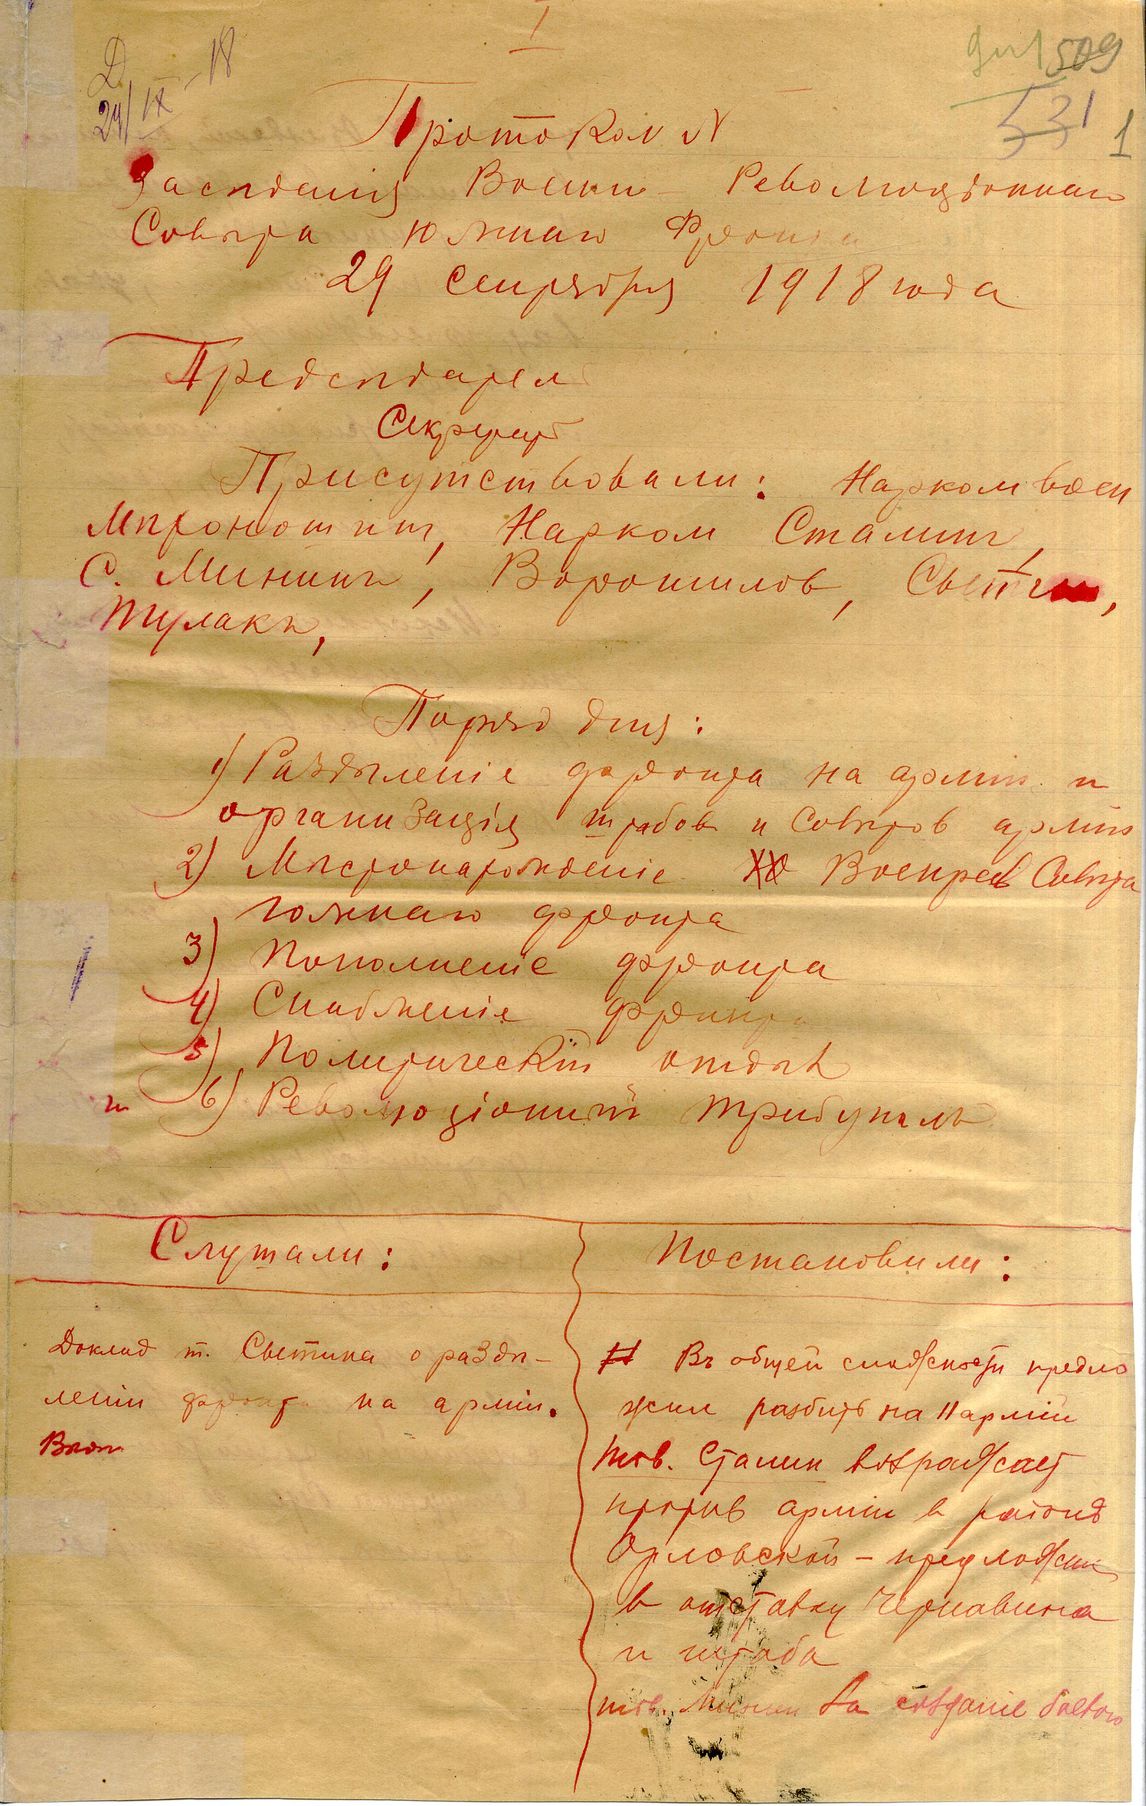 I
Д
29/IX-18
509
531
1
Протокол N
Заседанія Военно-Революціоннаго
Совѣта Южнаго Фронта
29 сентября 1918 года
Председатель
Секретарь
Присутствовали: Наркомвоен
Мехоношин, Нарком Сталинъ,
С. Мининъ, Ворошилов, Свѣтчин,
Тулакъ,
Поряд дня:
1) Раздѣленіе фронта на арміи и
организація штабов и Совѣтов арміи
2) Мѣстонахожденіе Военрев Совѣта
Южнаго фронта
3) Пополненіе фронта
4) Снабженіе фронта
5) Политическій отдѣл
6) Революціонный трибуналъ
Слушали:
Постановили:
Доклад т. Светчина о раздѣ-
леніи фронта на арміи.
Въ общей сложности предло
жил разбить на 11 армій
тов. Сталин возражает
прорыв арміи в районѣ
Орловской – предложил
в отставку Чернавина
и штаба
тов. Минин за созданіе боевого